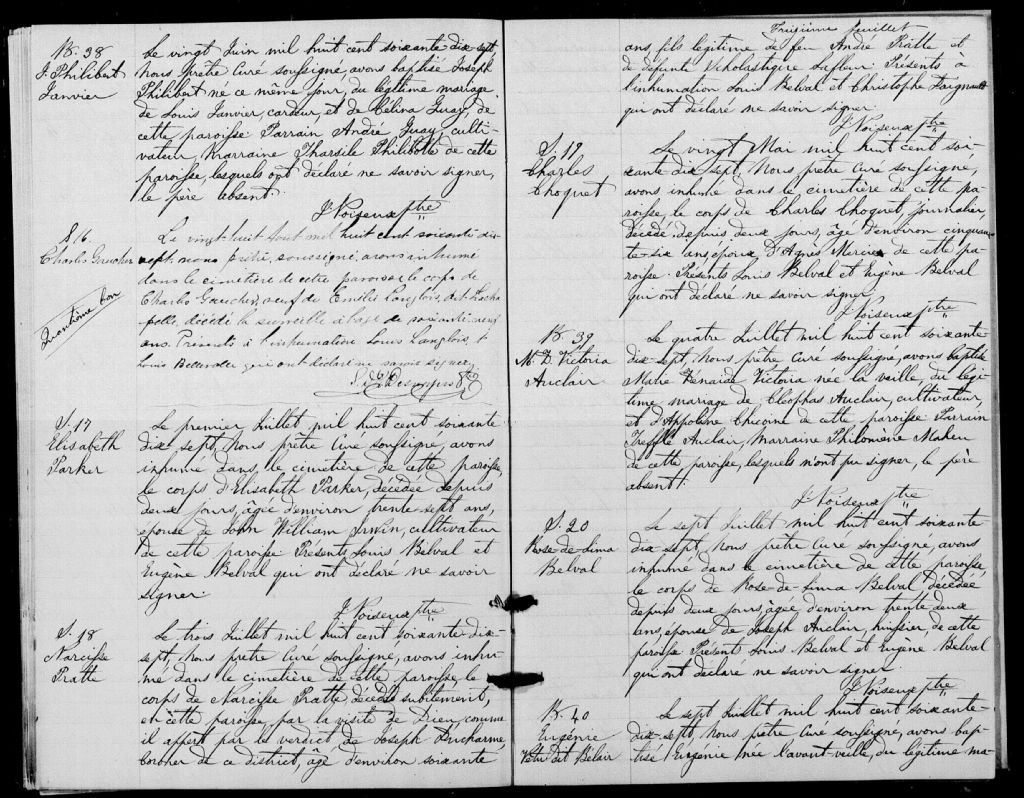 B. 38
J. Philibert
Janvier
Le vingt Juin mil huit cent soixante dix sept
Nous prêtre Curé soussigné, avons baptisé Joseph
Philibert né ce même jour, du légitime mariage
de Louis Janvier, cardeur, et de Célina Guay, de
cette paroisse Parrain André Guay, culti-
vateur, Marraine Tharsile Philibotte de cette
paroisse, lesquels ont déclaré ne savoir signer,
le père absent.
J. Noiseux ptre
S. 16.
Charles Gaucher
Quantième bon
Le vingt huit Aout mil huit cent soixante dix-
sept, nous prêtre, soussigné, avons inhumé
dans le cimetière de cette paroisse le corps de
Charles Gaucher, veuf de Emilie Langlois,
décédé la surveille à l'age de soixante-neuf
ans. Présents à l'inhumation Louis Langlois, &
Louis qui ont déclaré ne savoir signer.
Ptre
S. 17
Elisabeth
Parker
Le premier Juillet mil huit cent soixante
dix sept, Nous prêtre Curé soussigné, avons
inhumé dans le cimetière de cette paroisse,
le corps d'Elisabeth Parker, décédée depuis
deux jours, âgée d'environ trente-sept ans,
épouse de John William Irwin, cultivateur
de cette paroisse Présents Louis Belval et
Eugène Belval qui ont déclaré ne savoir
signer.
J. Noiseux ptre
S. 18
Narcisse
Pratte
Le trois Juillet mil huit cent soixante dix-
sept, Nous prêtre Curé soussigné, avons inhu-
mé dans le cimetière de cette paroisse, le
corps de Narcisse Pratte, décédé subitement,
en cette paroisse, par la visite de Dieu, comme
il appert par le verdict de Joseph Ducharme
Coroner de ce district, âgé d'environ soixante
Treizième feuillet
ans, fils légitime de feu André Pratte et
de défunte Scholastique Lafleur Présents à
l'inhumation Louis Belval et Christophe Daignault
qui ont déclaré ne savoir signer.
J. Noiseux ptre
S. 19
Charles
Choquet
Le vingt Mai mil huit cent soi-
xante dix sept, Nous prêtre Curé soussigné,
avons inhumé dans le cimetière de cette pa-
roisse, le corps de Charles Choquet, journalier,
décédé depuis deux jours, âgé d'environ cinquan-
te-six ans, époux D'Agnès Mercier de cette pa-
roisse. Présents Louis Belval et Eugène Belval
qui ont déclaré ne savoir signer.
J. Noiseux ptre
B. 39
M. Z. Victoria
Auclair
Le quatre Juillet mil huit cent soixante-
dix-sept, Nous prêtre Curé soussigné, avons baptisé
Marie Zénaide Victoria née la veille, du légi-
time mariage de Cléophas Auclair, cultivateur,
et d'Appoline Chicoine de cette paroisse Parrain
Trefflé Auclair, Marraine Philomène Maheu
de cette paroisse, lesquels n'ont pu signer, le père
absent.
J. Noiseux ptre
S. 20
Rose-de-Lima
Belval
Le sept Juillet mil huit cent soixante
dix sept, Nous prêtre Curé soussigné, avons
inhumé dans le cimetière de cette paroisse,
le corps de Rose-de-Lima Belval, décédée
depuis deux jours, âgée d'environ trente deux
ans, épouse de Joseph Auclair, huissier, de cette
paroisse Présent Louis Belval et Eugène Belval
qui ont déclaré ne savoir signer.
J. Noiseux ptre
B. 40
Eugénie
Vétu dit Bélair
Le sept Juillet mil huit cent soixante-
dix-sept, Nous prêtre Curé soussigné, avons bap-
tisé Eugénie née l'avant-veille, du légitime ma-